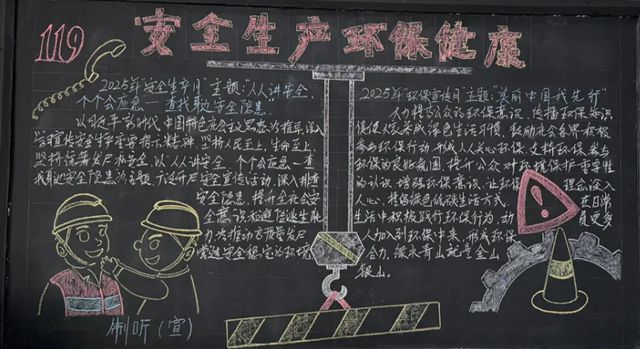 119
安全生产环保健康
2025年"安全生产月"主题:"人人讲安全、
个个会应急——查找身边安全隐患"
以习近平新时代中国特色社会主义思想为指导,深入
坚持人民至上、生命至上,
坚持统筹发展和安全,以"人人讲安全、个个会应急——查
找身边安全隐患"为主题,广泛开展安全宣传活动,深入排查
安全隐患,提升全社会安
全意识
为推动高质量发展
营造安全稳定的环境
制听(宣)
2025年"环保宣传月"主题:"美丽中国我先行"
大力提高公众的环保意识,传播环保知识
促使人们养成绿色生活习惯,鼓励社会各界积极
参与环保行动,形成人人关心环保、支持环保、参与
环保的良好氛围,提升公众对环境保护重要性
的认识,增强环保意识,让环保理念深入
人心,推倡绿色低碳生活方式,在日常
生活中积极践行环保行为,动员更多
人加入到环保中来,形成环保
合力,绿水青山就是金山
银山。